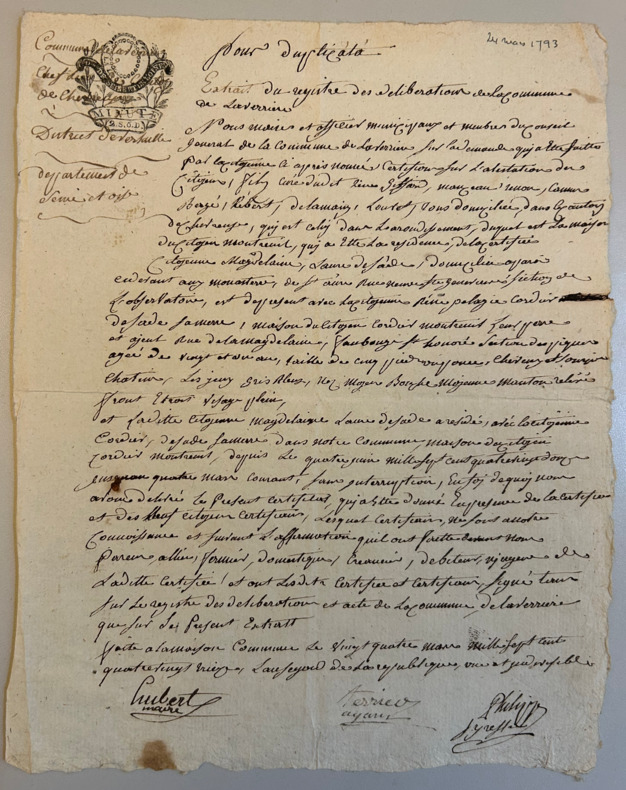 24 mars 1793
pour duplicata
Commune de laverriere
Chef L
de Chev
District de versaille
département de
Seine et oise
MINUTE
2. S. 6 D.
Extrait du registre des deliberations de la commune
de Laverriere
Nous maire et officier municipaux et membres du Conseil
general de la Commune de la verriere sur la demande qui a ette faitte
par la citoyenne ci apres nommé Certifions sur l'atestation des
Citoyens, cure dudit lieu
herbert, delamain, Louvet, tous domiciliés dans le canton
de chevreuse, qui est celuy dans l'arondissement, duquel est la maison
du Citoyen montreuil, qui a Ette la residence de la certifiée
Citoyenne Magdelaine, Laure de Sade, domiciliée a paris
cidevant aux monastere, de Ste aure Rue neuve Ste genevieve section de
L'observatoire, et de present avec la citoyenne Renée pelagie cordier
de sade sa mere, maison du Citoyen cordier montreuil son pere
et ajeul Rue de la magdelaine, faubourg St honoré section des piques
ageé de vingt et un ans, taille de cinq pied un pouce, cheveux et sourcis
Chatain, Les yeux gris bleus, Nez moyen Bouche Mojenne manton relevé
front Etroit visage plein,
et laditte citoyenne magdelaine Laure de sade a residé, avec la citoyenne
Cordier, de sade sa mere dans notre Commune maison du citoyen
Cordier montreuil, depuis le quatre juin mille sept cent quatre vingt douze
jusqu'au quatre mars courant, sans interruption, En foj de quoy nous
avons delivré le present Certificat, qui a Ette donné En presence de la certifiée
et des Neuf citoyens certifiants, Lesquels certifiants, ne sont a notre
connoissance et suivant l'affirmation qu'il ont faitte devant nous
Parens alliés, fermiers, domestiques, Creanciers, debiteurs, ni agens de
Laditte certifiée, et ont Ladite Certifiée et certifians, signé tant
sur le registre des deliberations et acte de la commune de laverriere
que sur le Present Extrait
faite a la maison Commune Le Vingt quatre mars mille sept cent
quatre vingt treize, L'an segond de la republique, une et indivisible
hubert
maire
Philippe
greffier